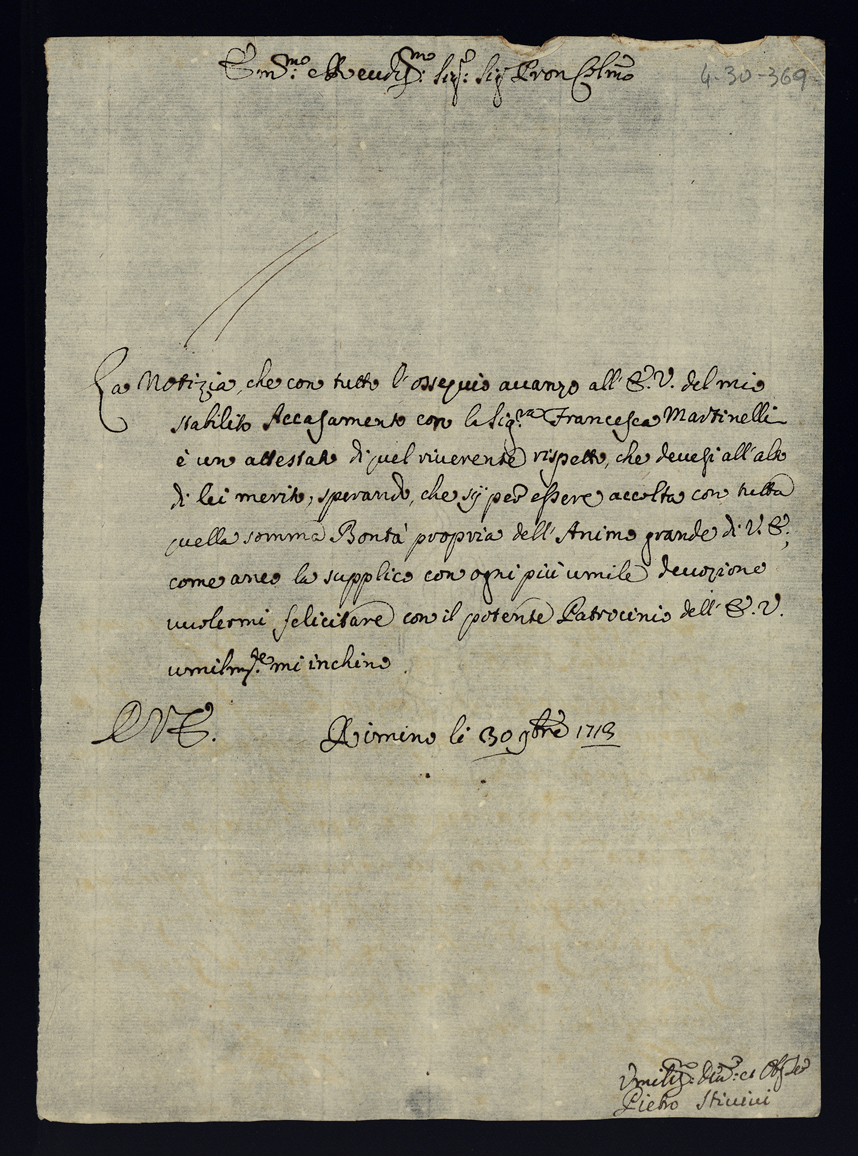 Em.mo e Reudis.mo Sig.r Sig Pron Colmo
4-30-369
La Notizia, che con tutto l'ossequio auanzo all'E.V. del mio
stabilito Accasamento con la Sig.ra Francesca Martinelli
è un attestato di quel riuerente rispetto, che deuesi all'alto
di lei merito, sperando, che sij per essere accolta con tutta
quella somma Bontà propria dell'Animo grande di V.E.;
come anco la supplico con ogni più umile deuozione
uolermi felicitare con il potente Patrocinio dell'E.V.
umilm.te mi inchino.
D V E.
Rimino li 30 9bre 1713
Umilis.mo Diu.mo et
Pietro Stiuini